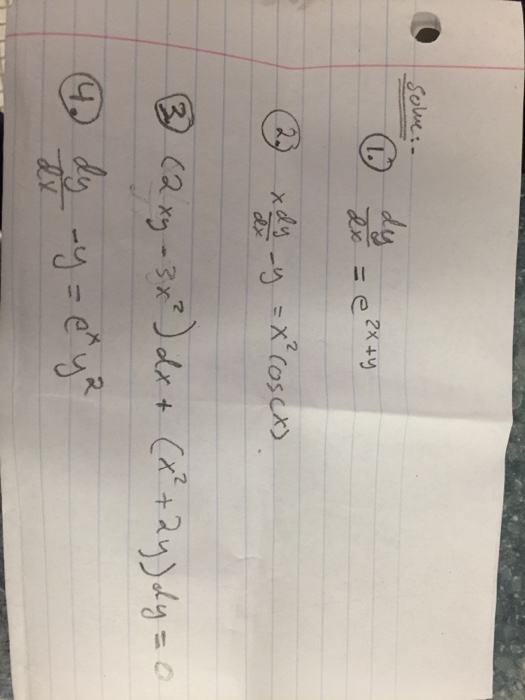 Solve:-
1. dy/dx = e^{2x+y}
2. x dy/dx - y = x² cos(x)
3. (2xy - 3x²)dx + (x² + 2y)dy = 0
4. dy/dx - y = e^x y²